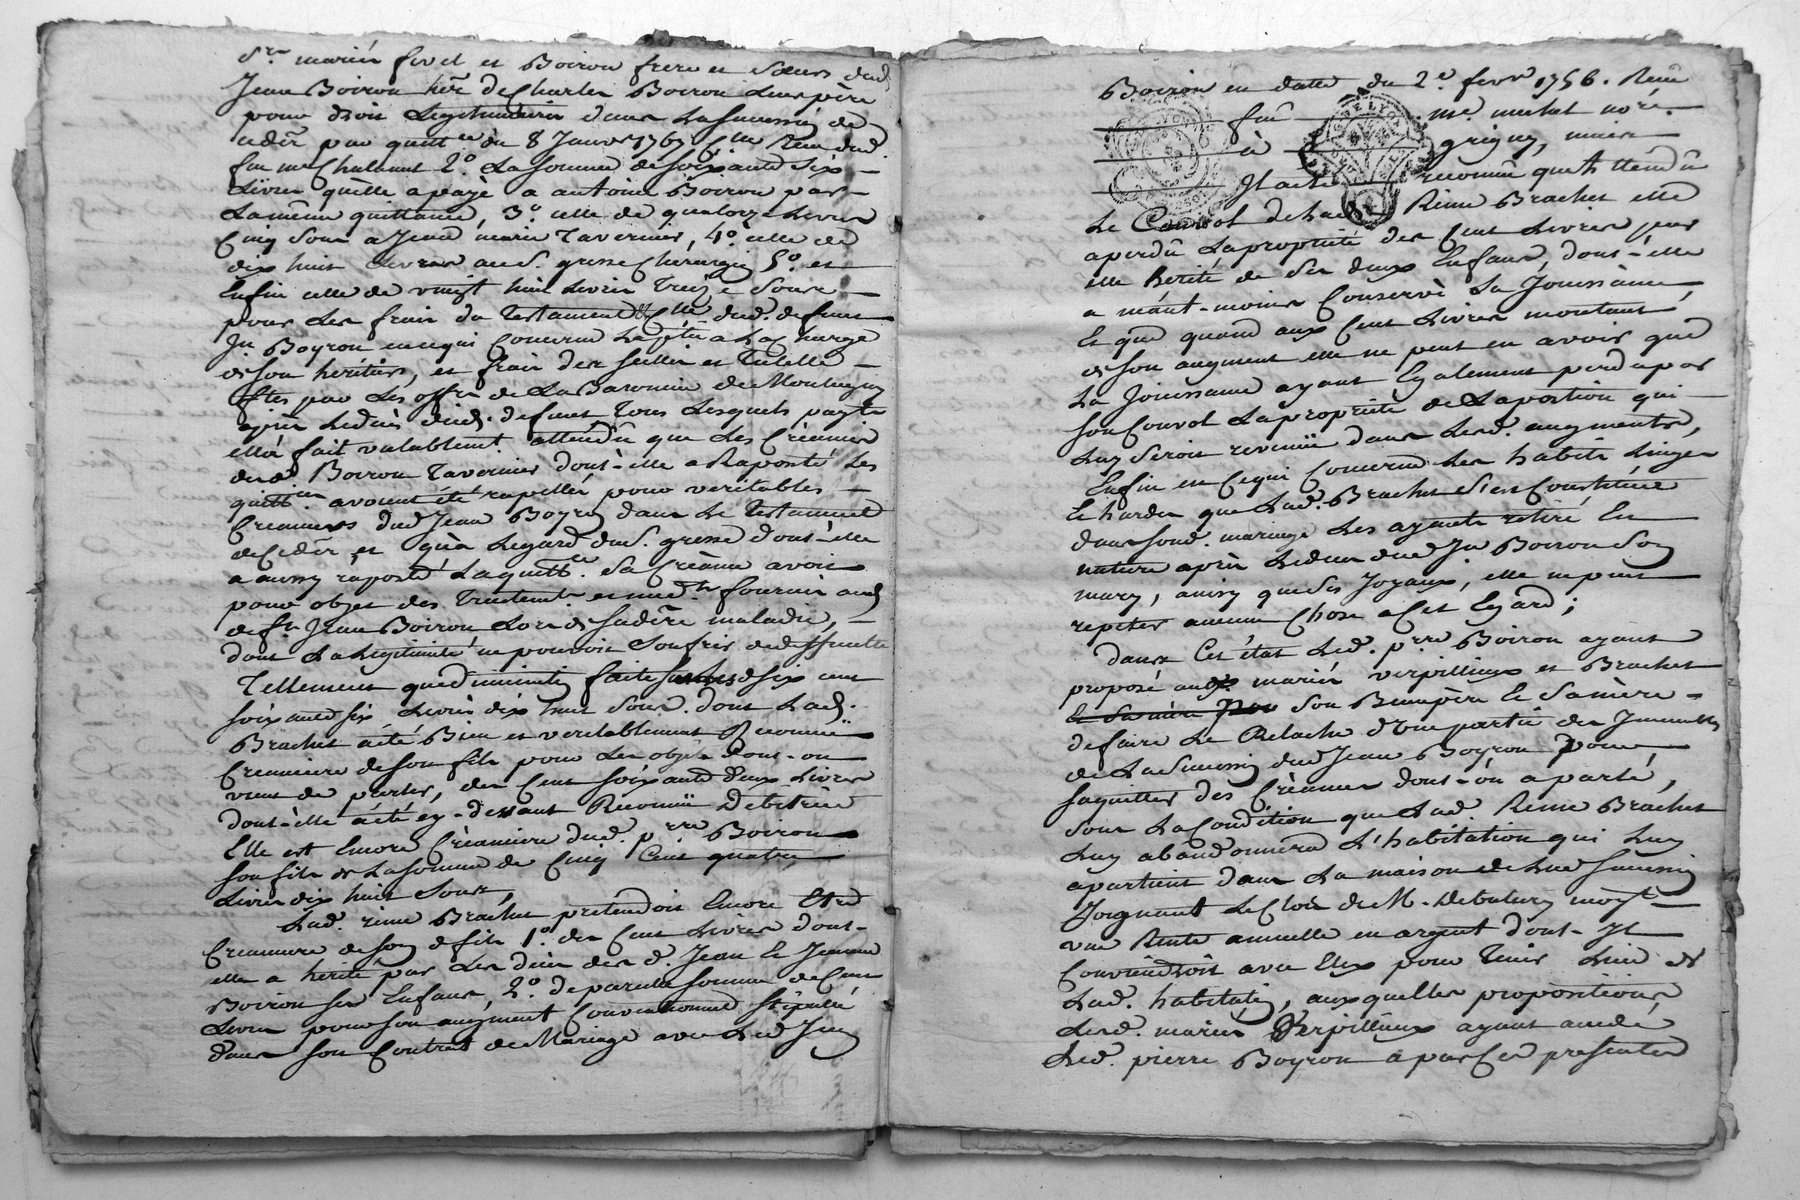 Srs mariés fivel et Boiron frere et Sœurs dud.
Jean Boiron hér. de Charles Boiron Leur père
pour droit Legitimaire dans La Succession de
cedér. par quitt.ce du 8 Janvr 1767
feu me Chalumet 2.o La Somme de soixante Six
Livres qu'elle a payé a antoine Boiron par
La même quittance, 3.o celle de quatorze Livres
Cinq Sous a Jean marie Tavernier, 4.o celle de
dix huit Livres au S. gresse Chirurgien 5.o et
Enfin celle de vingt huit Livres Treize Sous
pour Les frais du Testament dud. defunt
Jn Boyron en ce qui concerne La a La Charge
de Son héritier, et frais des Scellés et Tutelle
ftes par Les offrs de La Baronnie de Montagny
après Le décès dud. defunt Tous Lesquels payts
ella fait valablemt. attendû que Les Créanciers
dud. Boiron Tavernier dont-elle a Raporté Les
quitt.ces avoient été rapellés pour veritables
Creanciers dud Jean Boyron dans Le Testament
de Cedér. et qu'a Legard du S. gresse dont-elle
a aussy raporté La quitt.ce Sa Créance avoit
pour objet des Traitemts et medts fournis aud.
deft Jean Boiron Lors de Sadère maladie,
dont La Legitimité ne pouvoit Souffrir de difficulté
Tellement que diminution faite Sur Les Six cent
soixante six Livres dix huit Sous dont Lad.
Brachet a été Bien et veritablement Reconnüe
Creanciere de son fils pour Les objets dont on
vient de parler, des Cent soixante deux Livres
dont-elle a été cy-dessus Reconnüe Debitrice
Elle est Encore Créanciere dud. prre Boiron
son fils de La Somme de Cinq Cent quatre
Livres dix huit Sous,
Lad. reine Brachet pretendoit Encore Etre
Creanciere de Son d fils 1.o des Cent Livres dont-
elle a herité par Les décès des d. Jean et Jeanne
Boiron ses Enfans, 2.o de pareille somme de Cent
Livres pour son augment Conventionnel Stipulé
dans son Contrat de Mariage avec Led Jean
Boiron en datte du 2.e fevrr 1756. Reçu
feu me. murat nore.
à grigny, mais
Il a été reconnu que attendû
Le Convol de Lad. Reine Brachet elle
a perdû La proprieté des Cent Livres par
elle herité de Ses deux Enfans, dont-elle
a néant-moins Conservé La Jouissance
Et que quand aux Cent Livres montant
de son augment elle ne peut en avoir que
La Jouissance ayant Egalement perdu par
son Convol La proprieté de La portion qui
Luy Seroit revenüe dans Led. augment,
Enfin en Ce qui Concerne Les habits Linges
Et hardes que Lad. Brachet S'est Constituée
dans Sond. mariage Les ayants retiré En
nature après Le decès dud Jn Boiron Son
mary, ainsy que Ses Joyaux, elle ne peut
repeter aucune Chose a Cet Egard;
dans Cet état Led. prre Boiron ayant
proposé aux mariés verpillieux et Brachet
son Beaupère Et Sa mère
de faire Le Relache d'une partie des Immeubles
de La Succession dud Jean Boyron pour
saquitter des Créances dont-on a parlé,
sous La Condition que Lad. Reine Brachet
Luy abandonnera L'habitation qui Luy
apartient dans La maison de Lad Succession
Joignant Le Clos de M. moyt.
une Rente annuelle en argent dont Il
Conviendroit avec Elle pour Tenir Lieu de
Lad. habitation, auxquelles propositions
Lesd. mariés Verpillieux ayant accedé
Led. pierre Boyron a par Ces presentes